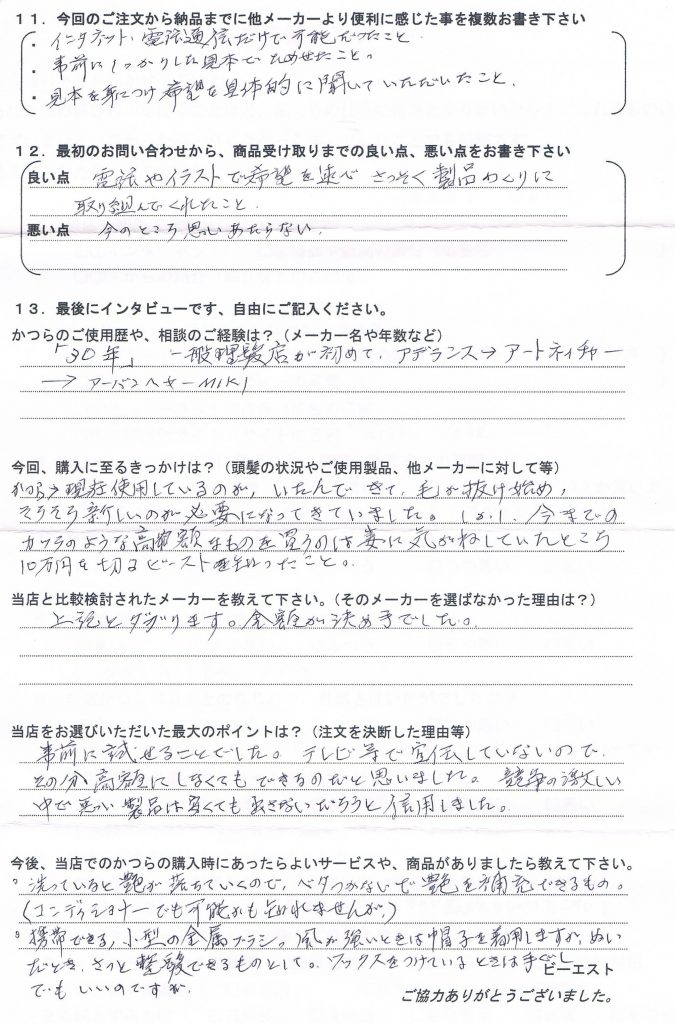 11．今回のご注文から納品までに他メーカーより便利に感じた事を複数お書き下さい
・インターネット、電話通信だけで可能だったこと
・事前にしっかりした見本でためせたこと。
・見本を身につけ希望を具体的に聞いていただいたこと。
12．最初のお問い合わせから、商品受け取りまでの良い点、悪い点をお書き下さい
良い点 電話やイラストで希望を述べ さっそく製品つくりに
取り組んでくれたこと
悪い点 今のところ思いあたらない。
13．最後にインタビューです、自由にご記入ください。
かつらのご使用歴や、相談のご経験は？（メーカー名や年数など）
「30年」 一般理髪店が初めて、アデランス→アートネイチャー
→アーバンヘヤーMIKI
今回、購入に至るきっかけは？（頭髪の状況やご使用製品、他メーカーに対して等）
現在使用しているのが、いたんできて、毛が抜け始め、
そろそろ新しいのが必要になってきていました。しかし、今までの
カツラのような高額なものを買うのは妻に気がねしていたところ
10万円を切るビーストを知ったこと。
当店と比較検討されたメーカーを教えて下さい。（そのメーカーを選ばなかった理由は？）
上記とダブります。金額が決め手でした。
当店をお選びいただいた最大のポイントは？（注文を決断した理由等）
事前に試せることでした。テレビ等で宣伝していないので、
その分高額にしなくてもできるのだと思いました。競争の激しい
中で悪い製品は安くても出さないだろうと信用しました。
今後、当店でのかつらの購入時にあったらよいサービスや、商品がありましたら教えて下さい。
洗っていると艶が落ちていくので、ベタつかないで艶を補充できるもの。
（コンディショナーでも可能かも知れませんが）
携帯できる、小型の金属ブラシ。風が強いときは帽子を着用しますが、ぬい
だとき、さっと整髪できるものとして。ワックスをつけているときは手ぐし
でもいいのですが。
ビーエスト
ご協力ありがとうございました。